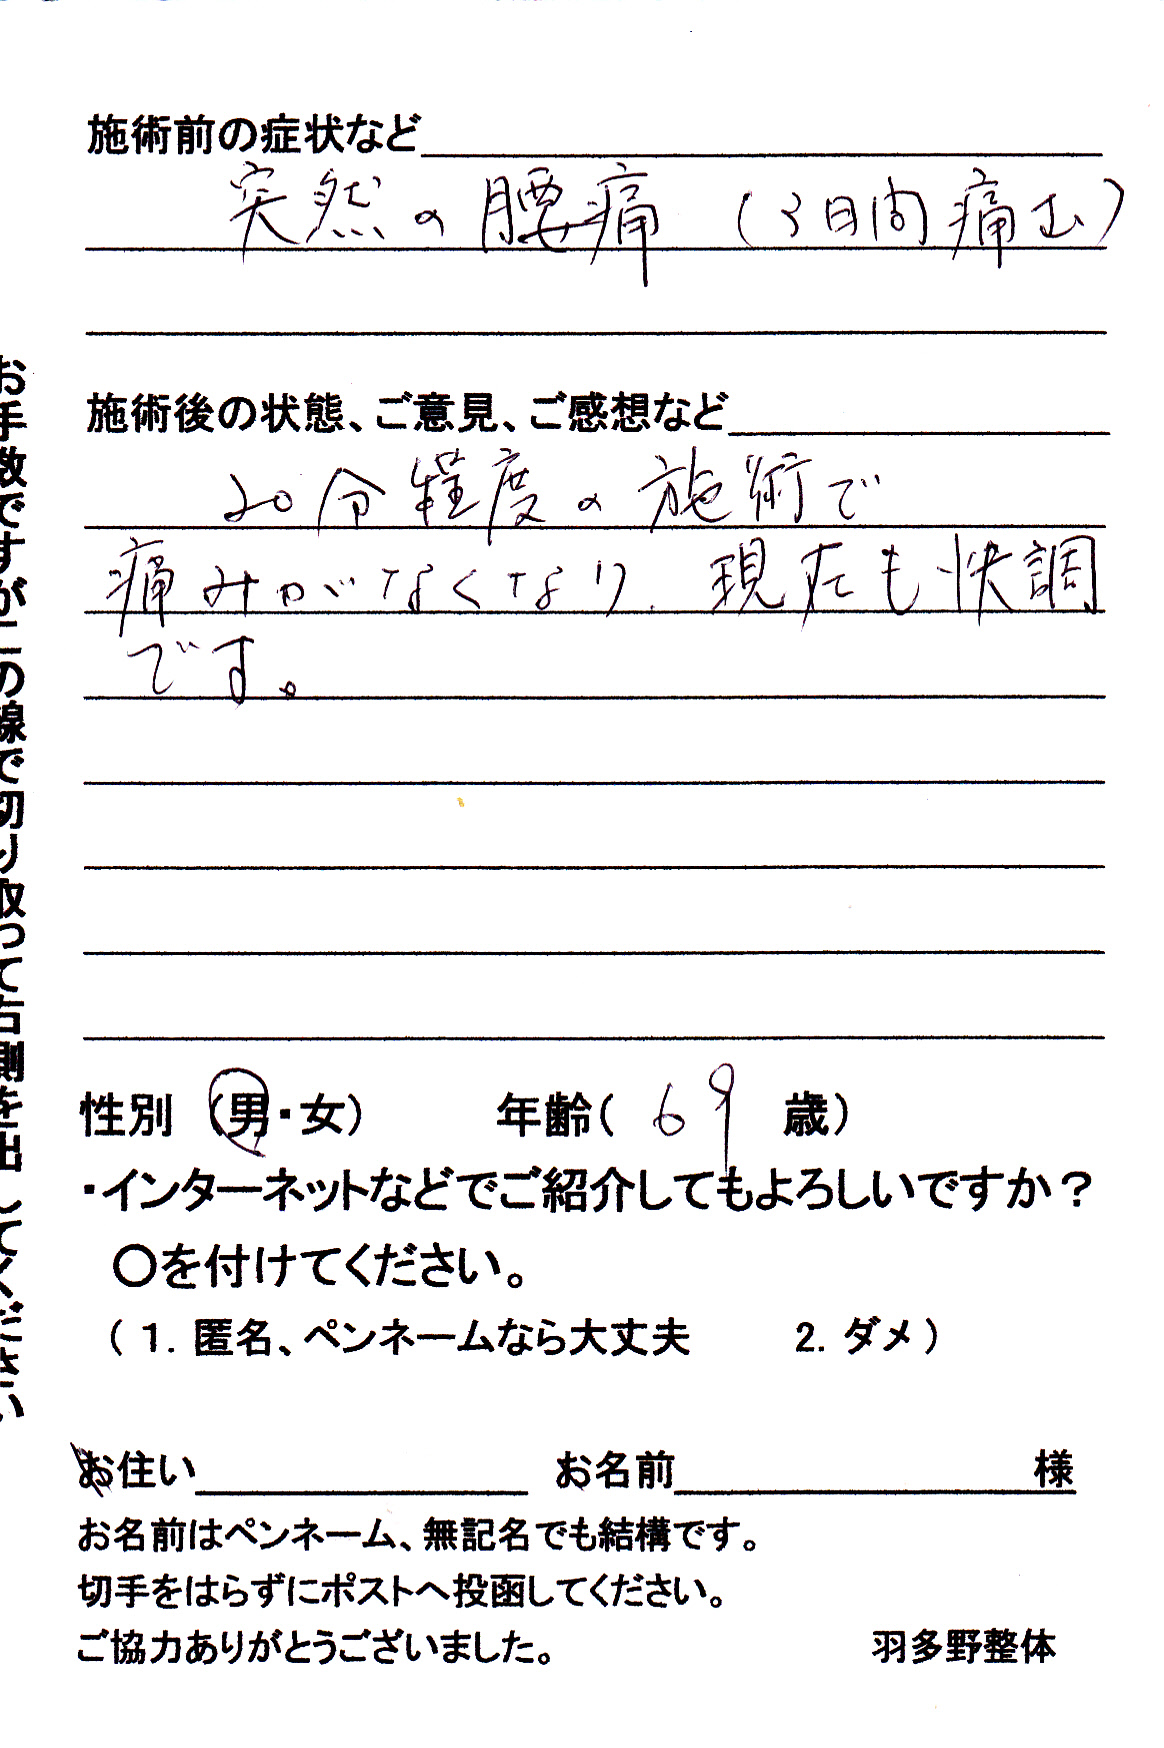 施術前の症状など
突然の腰痛 (3日間痛む)
施術後の状態、ご意見、ご感想など
20分程度の施術で
痛みがなくなり、現在も快調
です。
性別 (男・女) 年齢( 69 歳)
・インターネットなどでご紹介してもよろしいですか?
〇を付けてください。
(1. 匿名、ペンネームなら大丈夫 2. ダメ)
お住い お名前 様
お名前はペンネーム、無記名でも結構です。
切手をはらずにポストへ投函してください。
ご協力ありがとうございました。 羽多野整体
お手数ですがこの線で切り取って右側を出してください